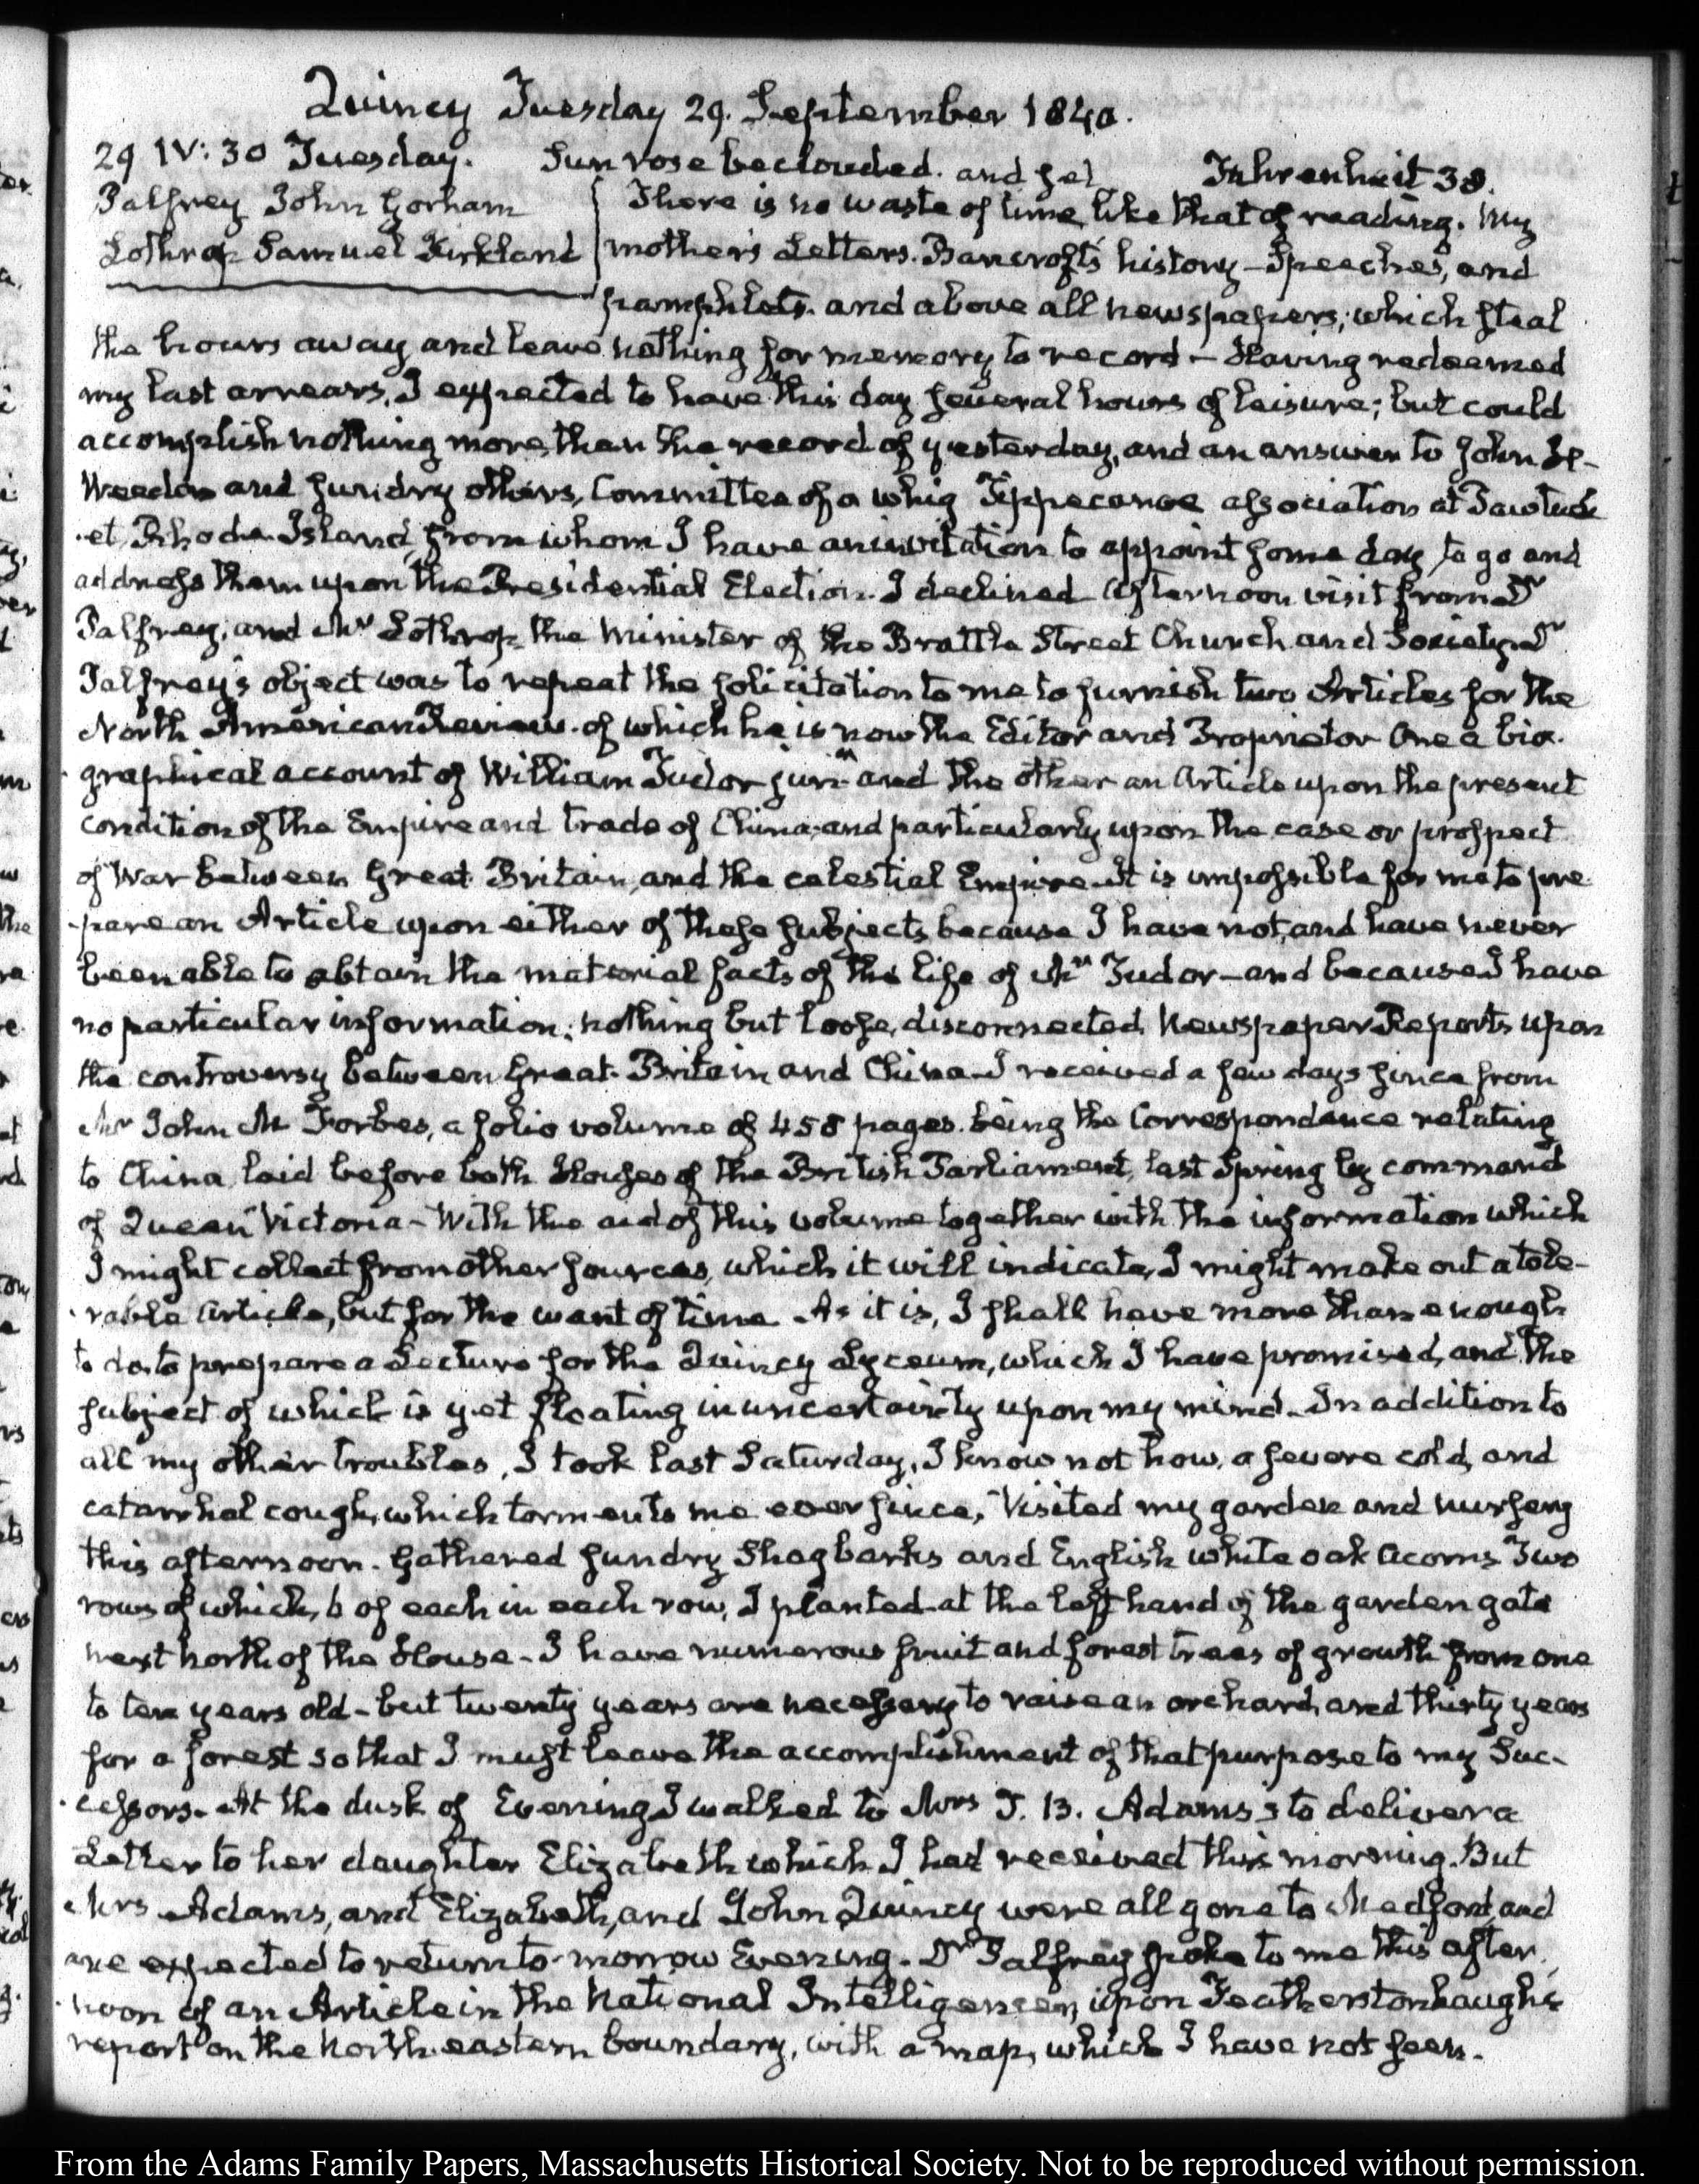 Quincy Tuesday 29. September 1840.
29 IV: 30 Tuesday. Sun rose beclouded. and set Fahrenheit 38.
Palfrey John Gorham
Lothrop Samuel Kirkland
There is no waste of time like that of reading. My
mother's Letters. Bancroft's history – Speeches, and
pamphlets. and above all newspapers; which steal
the hours away and leave nothing for memory to record – Having redeemed
my last arrears, I expected to have this day several hours of leisure; but could
accomplish nothing more than the record of yesterday, and an answer to John H.
Weedon and sundry others, Committee of a whig Tippecanoe association at Pawtuck
et, Rhode-Island, from whom I have an invitation to appoint some day to go and
address them upon the Presidential Election. I declined – Afternoon visit from Dr
Palfrey, and Mr Lothrop the Minister of the Brattle Street Church and Society. Dr
Palfrey's object was to repeat the solicitation to me to furnish two Articles for the
North American Review. of which he is now the Editor and Proprietor One a bio-
graphical account of William Tudor junr and the other an Article upon the present
condition of the Empire and trade of China, and particularly upon the case or prospect
of War between Great Britain, and the celestial Empire. It is impossible for me to pre
-pare an Article upon either of these subjects because I have not, and have never
been able to obtain the material facts of the life of Mr Tudor – and because I have
no particular information; nothing but loose, disconnected Newspaper Reports upon
the controversy between Great-Britain and China – I received a few days since from
Mr John M Forbes, a folio volume of 458 pages. being the Correspondence relating
to China laid before both Houses of the British Parliament, last Spring by command
of Queen Victoria – With the aid of this volume together with the information which
I might collect from other sources, which it will indicate, I might make out a tole-
-rable Article, but for the want of time – As it is, I shall have more than enough
to do, to prepare a Lecture for the Quincy Lyceum, which I have promised, and the
subject of which is yet floating in uncertainty upon my mind – In addition to
all my other troubles, I took last Saturday, I know not how, a severe cold, and
catarrhal cough, which torments me ever since. Visited my garden and nursery
this afternoon. Gathered sundry Shagbarks and English white oak Acorns Two
rows of which, 6 of each in each row, I planted at the left hand of the garden gate
next north of the House – I have numerous fruit and forest trees of growth from one
to ten years old – but twenty years are necessary to raise an orchard, and thirty years
for a forest so that I must leave the accomplishment of that purpose to my Suc-
-cessors. At the dusk of Evening I walked to Mrs T. B. Adams's to deliver a
Letter to her daughter Elizabeth which I had received this morning. But
Mrs Adams, and Elizabeth, and John Quincy were all gone to Medford, and
are expected to return to-morrow Evening. Dr Palfrey spoke to me this after
-noon of an Article in the National Intelligencer, upon Featherstonhaugh's
report on the North-eastern boundary, with a map, which I have not seen.
From the Adams Family Papers, Massachusetts Historical Society. Not to be reproduced without permission.